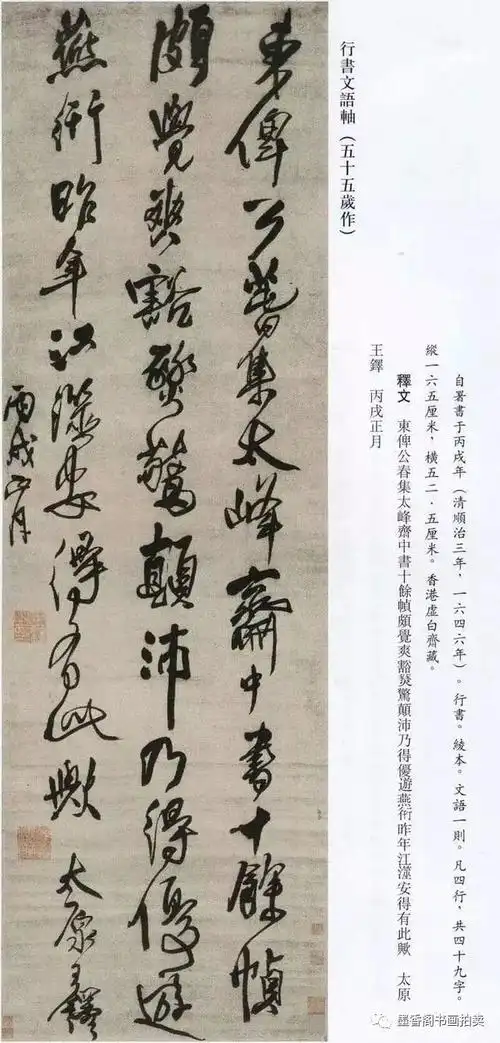 自署書于丙戌年（清順治三年，一六四六年）。行書。綾本。文語一則。凡四行，共四十九字。
縱一六五厘米，橫五二·五厘米。香港虛白齋藏。
釋文　東俾公春集太峰齋中書十餘幀頗覺爽豁驚顛沛乃得優遊燕衎昨年江安得有此歟　太原
王鐸　丙戌正月
行書文語軸（五十五歲作）
東俾公春集太峰齋中書十餘幀
頗覺爽豁驚顛沛乃得優遊
燕衎昨年江安得有此歟　太原王鐸
丙戌正月
墨香阁书画拍卖